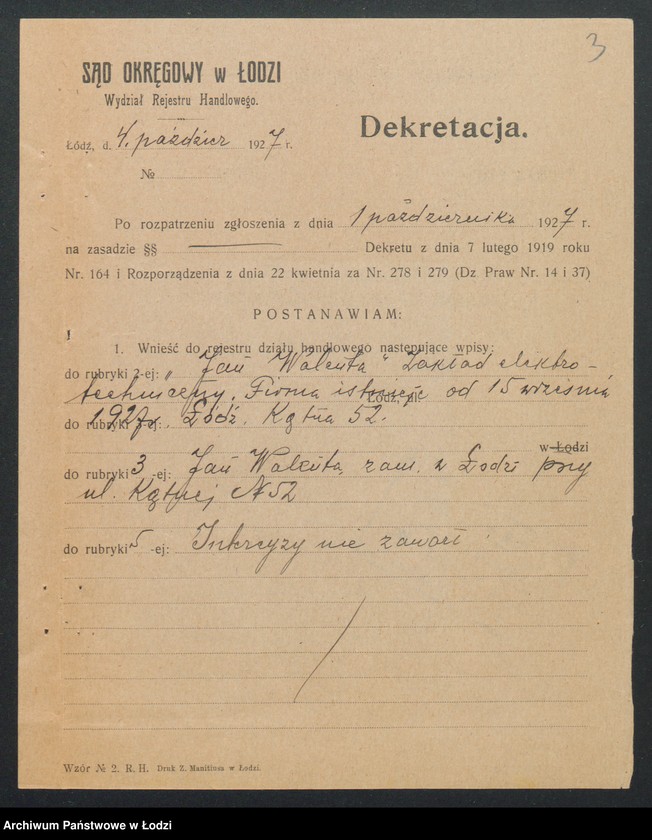 3
SĄD OKRĘGOWY w ŁODZI
Wydział Rejestru Handlowego.
Dekretacja.
Łódź, d. 4. paździer 1927 r.
№
Po rozpatrzeniu zgłoszenia z dnia 1 października 1927 r.
na zasadzie §§ Dekretu z dnia 7 lutego 1919 roku
Nr. 164 i Rozporządzenia z dnia 22 kwietnia za Nr. 278 i 279 (Dz. Praw Nr. 14 i 37)
POSTANAWIAM:
1. Wnieść do rejestru działu handlowego następujące wpisy:
do rubryki 2-ej: „Jan Walenta" Zakład elektro-
techniczny. Firma istnieje od 15 września
Łódź, ul.
do rubryki -ej: 1927 r. Łódź. Kątna 52.
w Łodzi
do rubryki 3 -ej: Jan Walenta, zam. w Łodzi przy
ul. Kątnej № 52
do rubryki 5 -ej: Intercyzy nie zawarł
Wzór № 2. R. H. Druk Z. Manitiusa w Łodzi.
Archiwum Państwowe w Łodzi